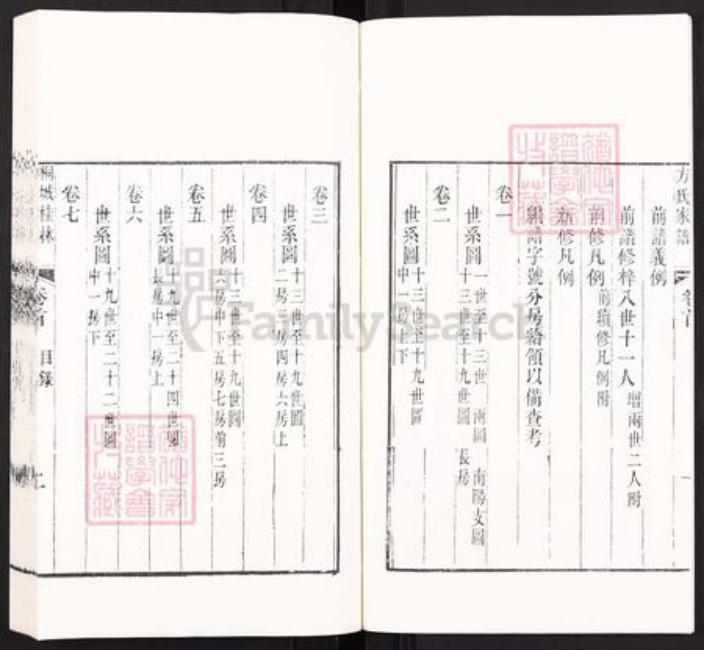 方氏家譜
卷首
前譜義例
前譜修梓八世十一人 增兩世二人附
前修凡例 前續修凡例附
新修凡例
編譜字號分房給領以備查考
卷一
世系圖 一世至十三世 兩圖 南陽支圖
十三世至十九世圖 長房
卷二
世系圖 十三世至十九世圖
中一房上下
卷三
世系圖 十三世至十九世圖
二房三房四房六房上
卷四
世系圖 十三世至十九世圖
六房中下五房七房前三房
卷五
世系圖 十九世至二十四世圖
長房中一房上
卷六
世系圖 十九世至二十二世圖
中一房下
卷七
桐城桂林
卷首
目錄
FamilySearch